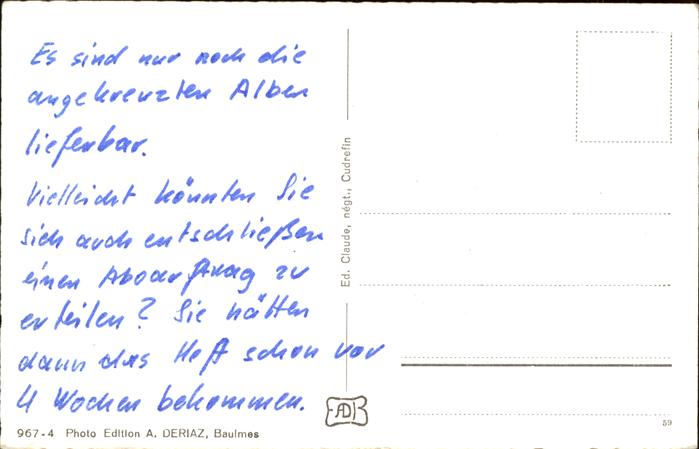 Es sind nur noch die
angekreuzten Alben
lieferbar.
Vielleicht könnten Sie
sich auch entschließen
einen Aboauftrag zu
erteilen? Sie hätten
dann das Heft schon vor
4 Wochen bekommen.
Ed. Claude, négt., Cudrefin
AD
59
967-4 Photo Edition A. DERIAZ, Baulmes